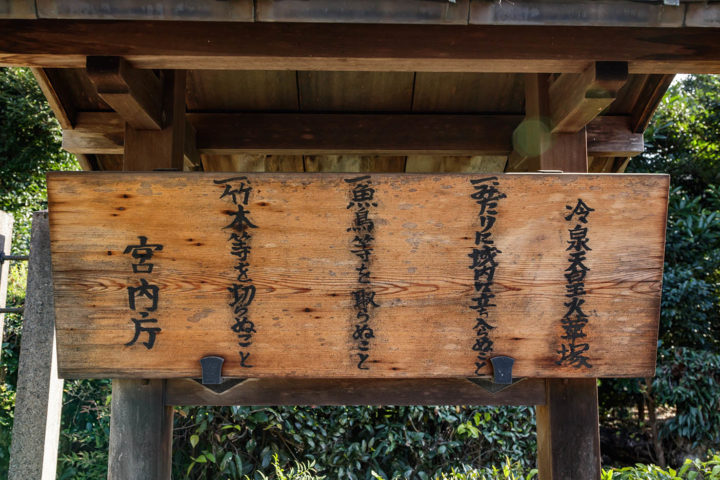 冷泉天皇火葬塚
一みだりに域内に立ち入らぬこと
一魚鳥等を取らぬこと
一竹木等を切らぬこと
宮内庁